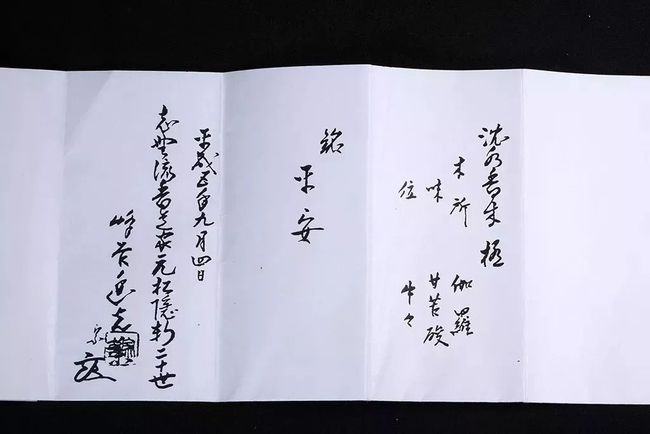 沈水香木 極
木所 伽羅
味 甘苦酸
位
銘 平安
平成五年九月四日
志野流香道家元松隠軒二十世
峰谷幽光斎
宗玄